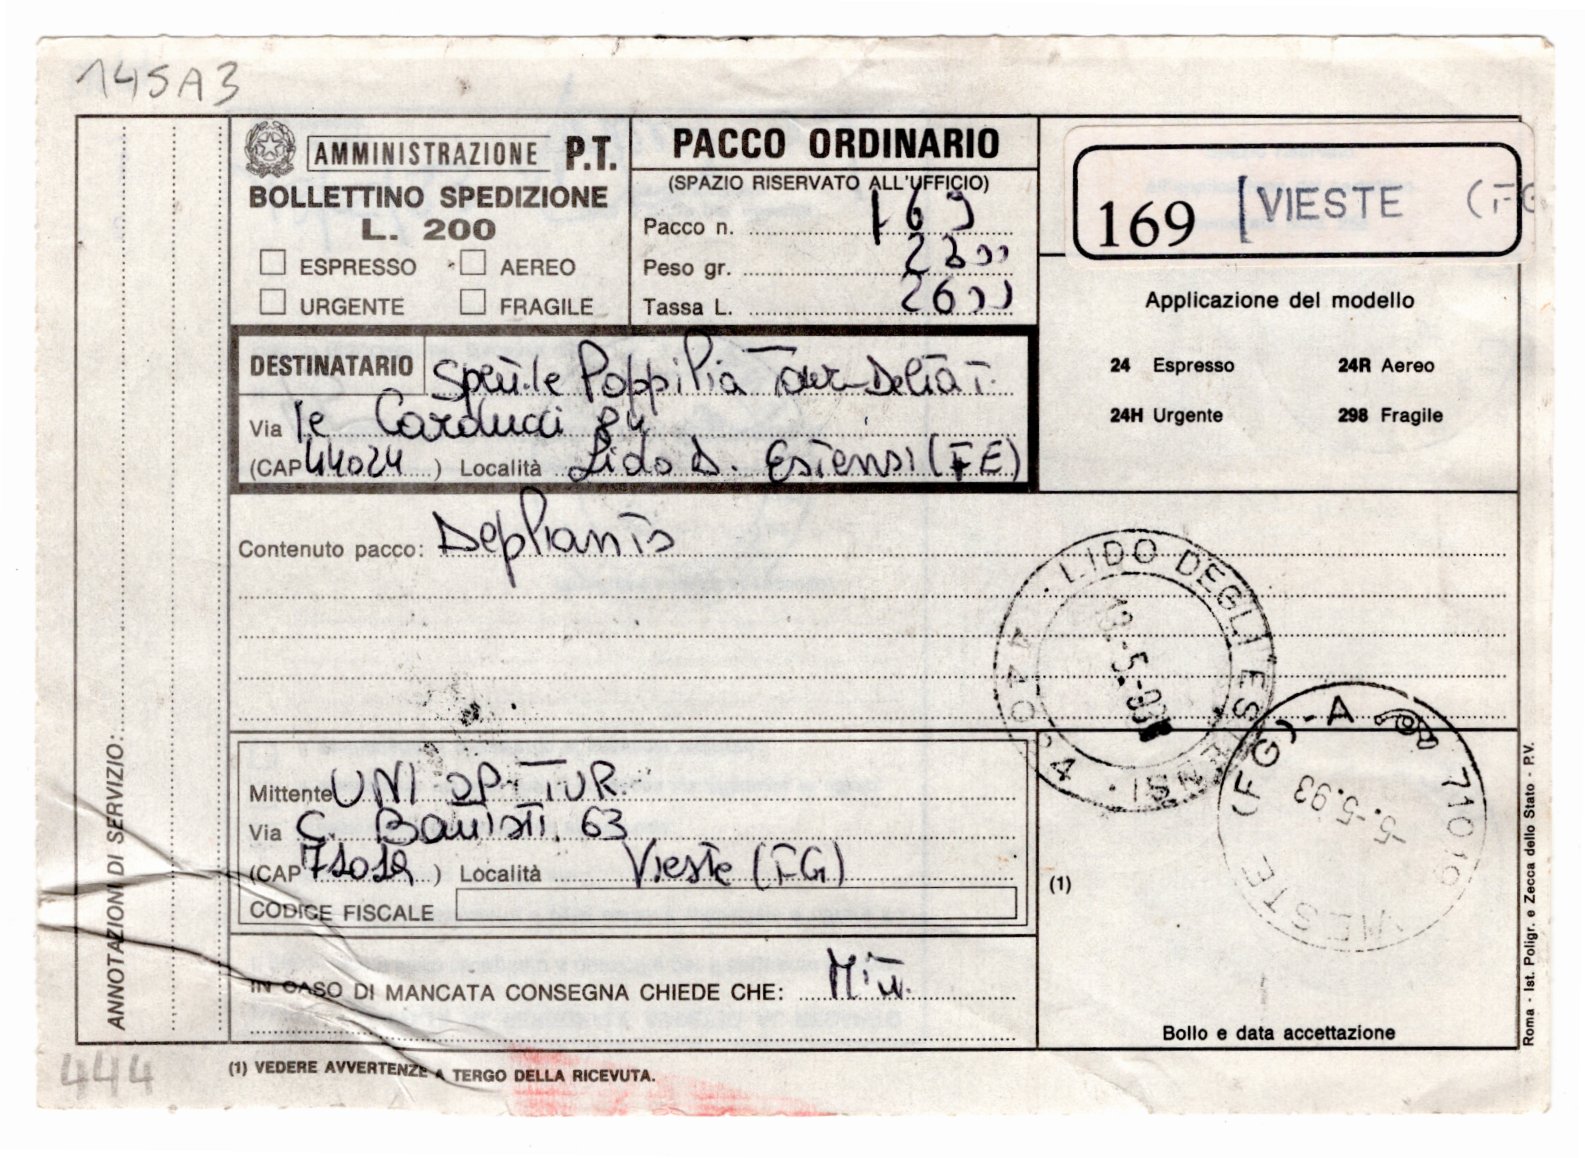 145A3
AMMINISTRAZIONE P.T.
BOLLETTINO SPEDIZIONE
L. 200
ESPRESSO AEREO
URGENTE FRAGILE
PACCO ORDINARIO
(SPAZIO RISERVATO ALL'UFFICIO)
Pacco n. 169
Peso gr. 2300
Tassa L. 2600
169 VIESTE (FG
Applicazione del modello
24 Espresso 24R Aereo
24H Urgente 298 Fragile
DESTINATARIO Poppilia
Via le Carducci 84
(CAP 44024 ) Località Lido D. Estensi (FE)
Contenuto pacco: Deplianis
44024 · LIDO DEGLI ESTENSI ·
18.-5.-93
VIESTE (FG) - A 71019
-5.-5.93
Mittente UNI OP TUR.
Via C. Battisti 63
(CAP 71019 ) Località Vieste (FG)
CODICE FISCALE
IN CASO DI MANCATA CONSEGNA CHIEDE CHE: Mitt.
(1)
Bollo e data accettazione
ANNOTAZIONI DI SERVIZIO:
Roma - Ist. Poligr. e Zecca dello Stato - P.V.
444
(1) VEDERE AVVERTENZE A TERGO DELLA RICEVUTA.